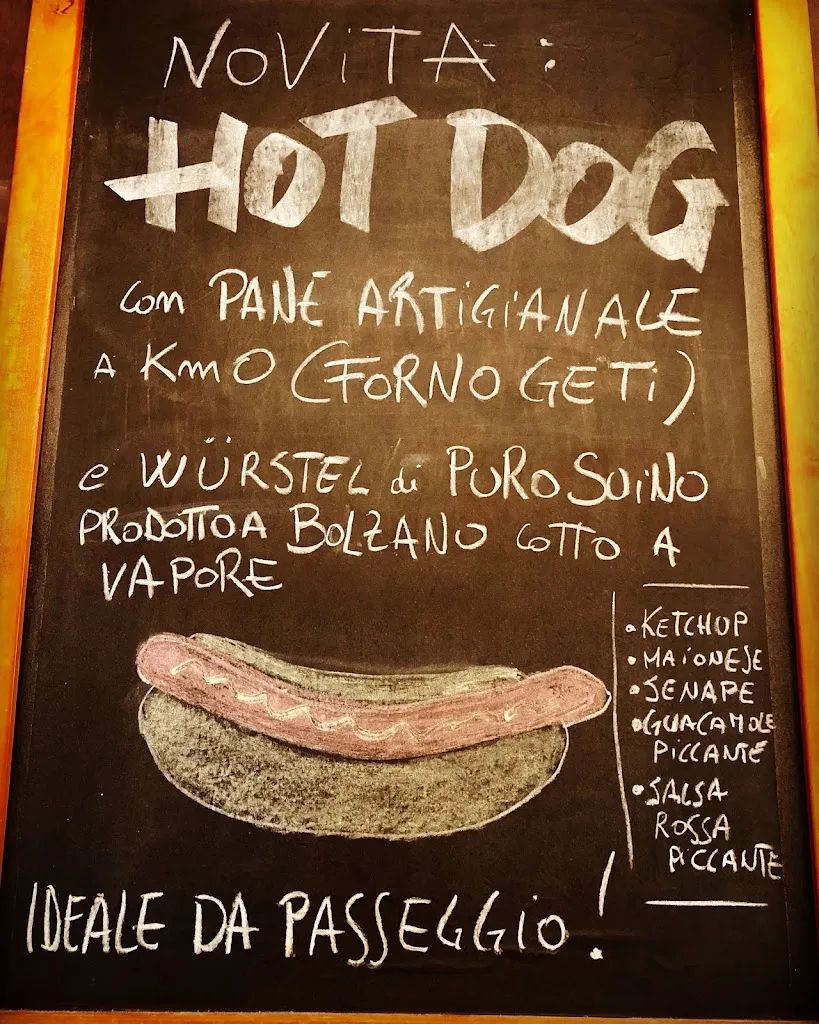 NOViTA:
HOT DOG
con PANE ARTiGiANALE
A Km0 (FORNO GETi)
e WÜRSTEL di PURO SUiNO
PRODOTTO A BOLZANO COTTO A
VAPORE
• KETCHUP
• MAiONESE
• SENAPE
• GUACAMOLE
PiCCANTE
• SALSA
ROSSA
PiCCANTE
IDEALE DA PASSEGGiO!